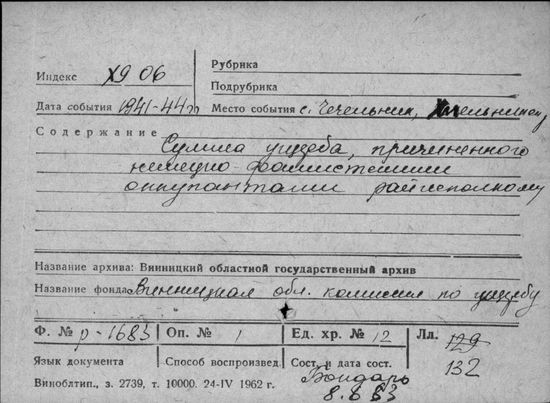 Рубрика
Индекс X9 06
Подрубрика
Дата события 1941-44гг Место события с. Чечельник,
Содержание Сумма ущерба, причиненного
немецко-фашистскими
оккупантами райисполкому
Название архива: Винницкий областной государственный архив
Название фонда: Винницкая обл. комиссия по ущербу
Ф. № р-1683 Оп. № 1 Ед. хр. № 12 Лл. 129
132
Язык документа Способ воспроизвед. Сост. и дата сост.
Бондарь
8.6 83
Виноблтип., з. 2739, т. 10000. 24-IV 1962 г.